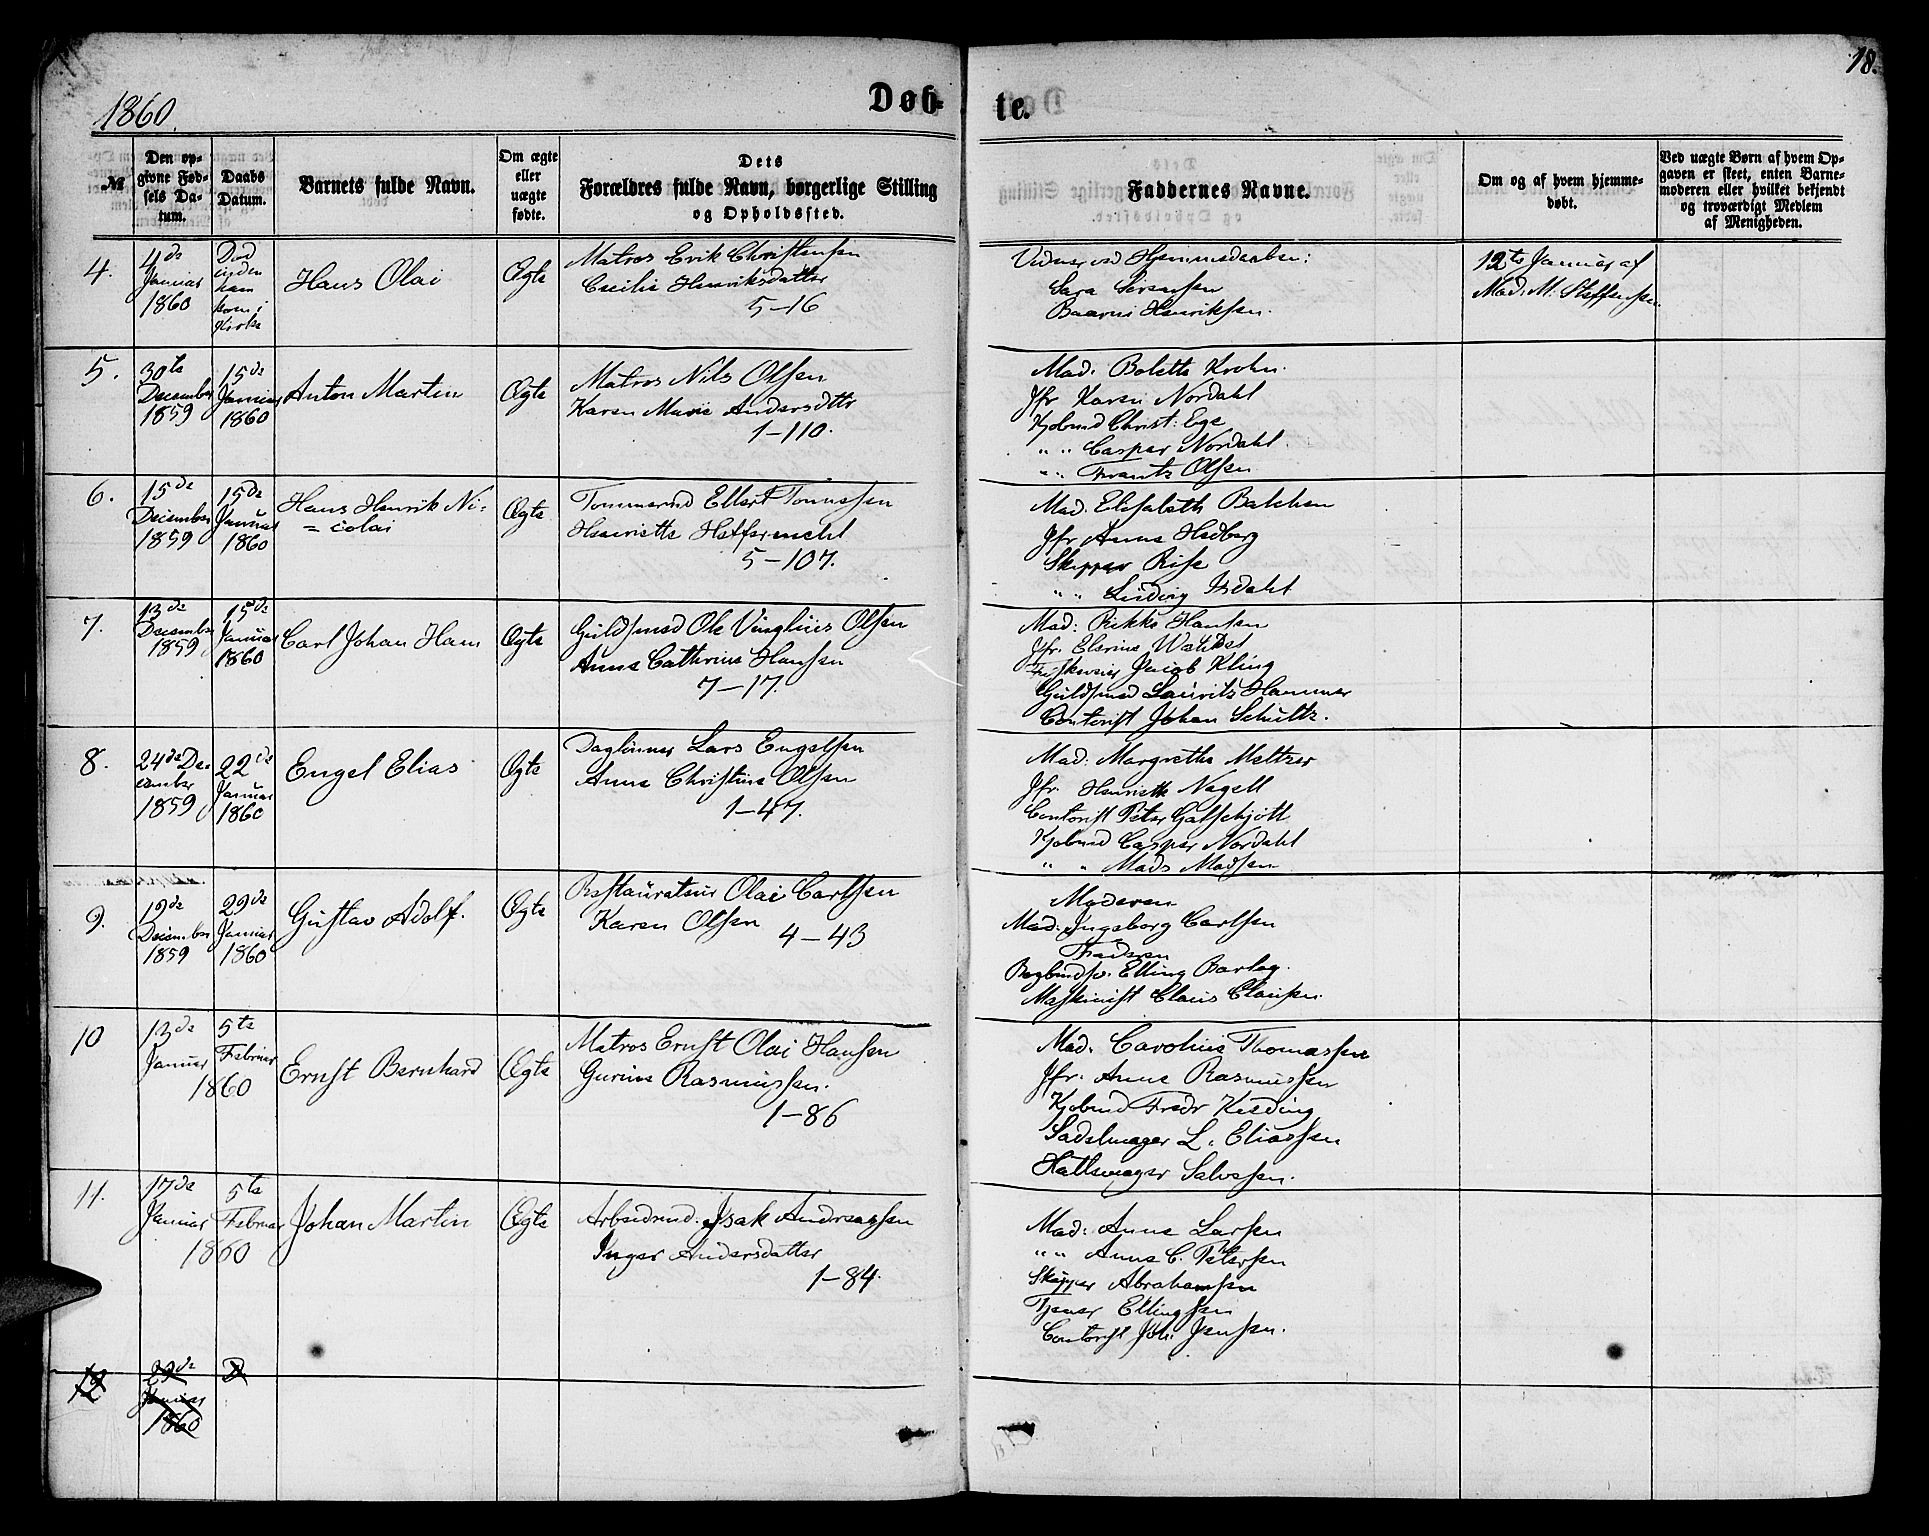 18.
1860.
Døb-
te.
№
Den op-
givne Fød-
sels Da-
tum.
Daabs
Datum.
Barnets fulde Navn.
Om ægte
eller
uægte
fødte.
Dets
Forældres fulde Navn, borgerlige Stilling
og Opholdssted.
Faddernes Navne.
Om og af hvem hjemme-
døbt.
Ved uægte Børn af hvem Op-
gaven er skeet, enten Barne-
moderen eller hvilket bekjendt
og troværdigt Medlem
af Menigheden.
4.
4de
Januar
1860
Død
inden
ham
kom i
Kirke
Hans Olai
Ægte
Matros Erik Christensen
Cecilie Henriksdatter
5-16
Vidner ved Hjemmedaaben:
Sara
Henriksen.
12te Januar af
Mad. M. Steffensen
5.
30te
December
1859
15de
Januar
1860
Anton Martin
Ægte
Matros Nils Olsen
Karen Marie Andersdttr
1-110.
Mad. Bolette Krohn.
Jfr Karen Nordahl
Kjøbmd Christ: Ege
" " Casper Nordahl.
" " Frantz Olsen
6.
15de
December
1859
15de
Januar
1860
Hans Henrik Ni-
=colai
Ægte
Tømmermd Ellert Tønnesen
Henriette
5-107.
Mad. Elisabeth Bakken
Jfr Anna Hedberg
Skipper Rise
" " Ludvig Isdahl
7.
13de
December
1859
15de
Januar
1860
Carl Johan Hans
Ægte
Guldsmed Ole Olsen
Anne Cathrine Hansen
7-17.
Mad: Rikke Hansen
Jfr. Elerine
Jacob Kling
Guldsmed Laurits Hammer
Contorist Johan Schultz.
8.
24de De-
cember
1859
22de
Januar
1860
Engel Elias
Ægte
Dagløнner Lars Engelsen
Anne Christine Olsen
1-47.
Mad: Margrethe Meltzer
Jfr. Henriette Nagell
Contorist Peter Galschjøtt
Kjøbmd Casper Nordahl
" " Mads Madsen
9.
19de
December
1859
29de
Januar
1860
Gustav Adolf.
Ægte
Restaurateur Olai Carlsen
Karen Olsen
4-43
Moderen
Mad. Ingeborg Carlsen
Faderen
Elling Barlag.
Maskinist Claus Clausen.
10
13de
Januar
5te
Februar
1860
Ernst Bernhard
Ægte
Matros Ernst Olai Hansen
Gurine Rasmussen.
1-86
Mad. Caroline Thomassen
Jfr. Anne Rasmussen
Kjøbmd Fredr Kielding
Sadelmager L. Eliassen
Hattemager Salvesen.
11.
17de
Januar
5te
Februar
1860
Johan Martin
Ægte
Arbeidsmd. Isak Andreassen
Inger Andersdatter
1-84.
Mad: Anne Larsen
" " Anne C. Petersen
Skipper Abrahamsen
Tjener Ellingsen
Contorist Joh. Jensen.
12
29de
Januar
1860
D